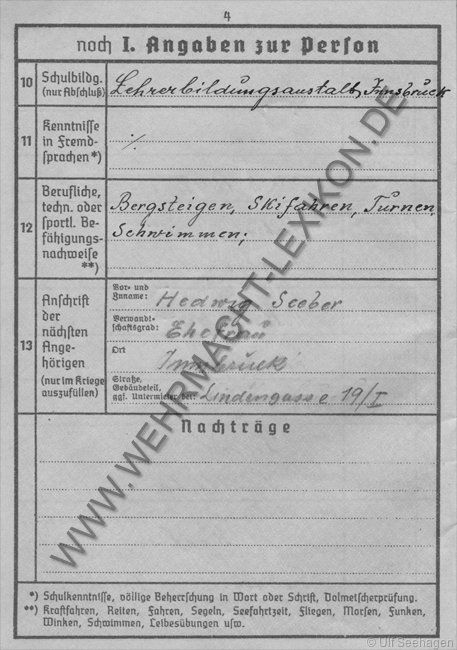 4
noch I. Angaben zur Person
10 Schulbildg. (nur Abschluß) Lehrerbildungsanstalt, Innsbruck
11 Kenntnisse in Fremdsprachen*) ·/.
12 Berufliche, techn. oder sportl. Befähigungsnachweise **) Bergsteigen, Skifahren, Turnen,
Schwimmen;
13 Anschrift der nächsten Angehörigen (nur im Kriege auszufüllen)
Vor- und Zuname: Hedwig Seeber
Verwandtschaftsgrad: Ehefrau
Ort Innsbruck
Straße, Gebäudeteil, ggl. Untermieter bei: Lindengasse 19/I
Nachträge
*) Schulkenntnisse, völlige Beherrschung in Wort oder Schrift, Dolmetscherprüfung.
**) Kraftfahren, Reiten, Fahren, Segeln, Seefahrtzeit, Fliegen, Morsen, Funken,
Winken, Schwimmen, Leibesübungen usw.
WWW.WEHRMACHT-LEXIKON.DE
© Ulf Seehagen